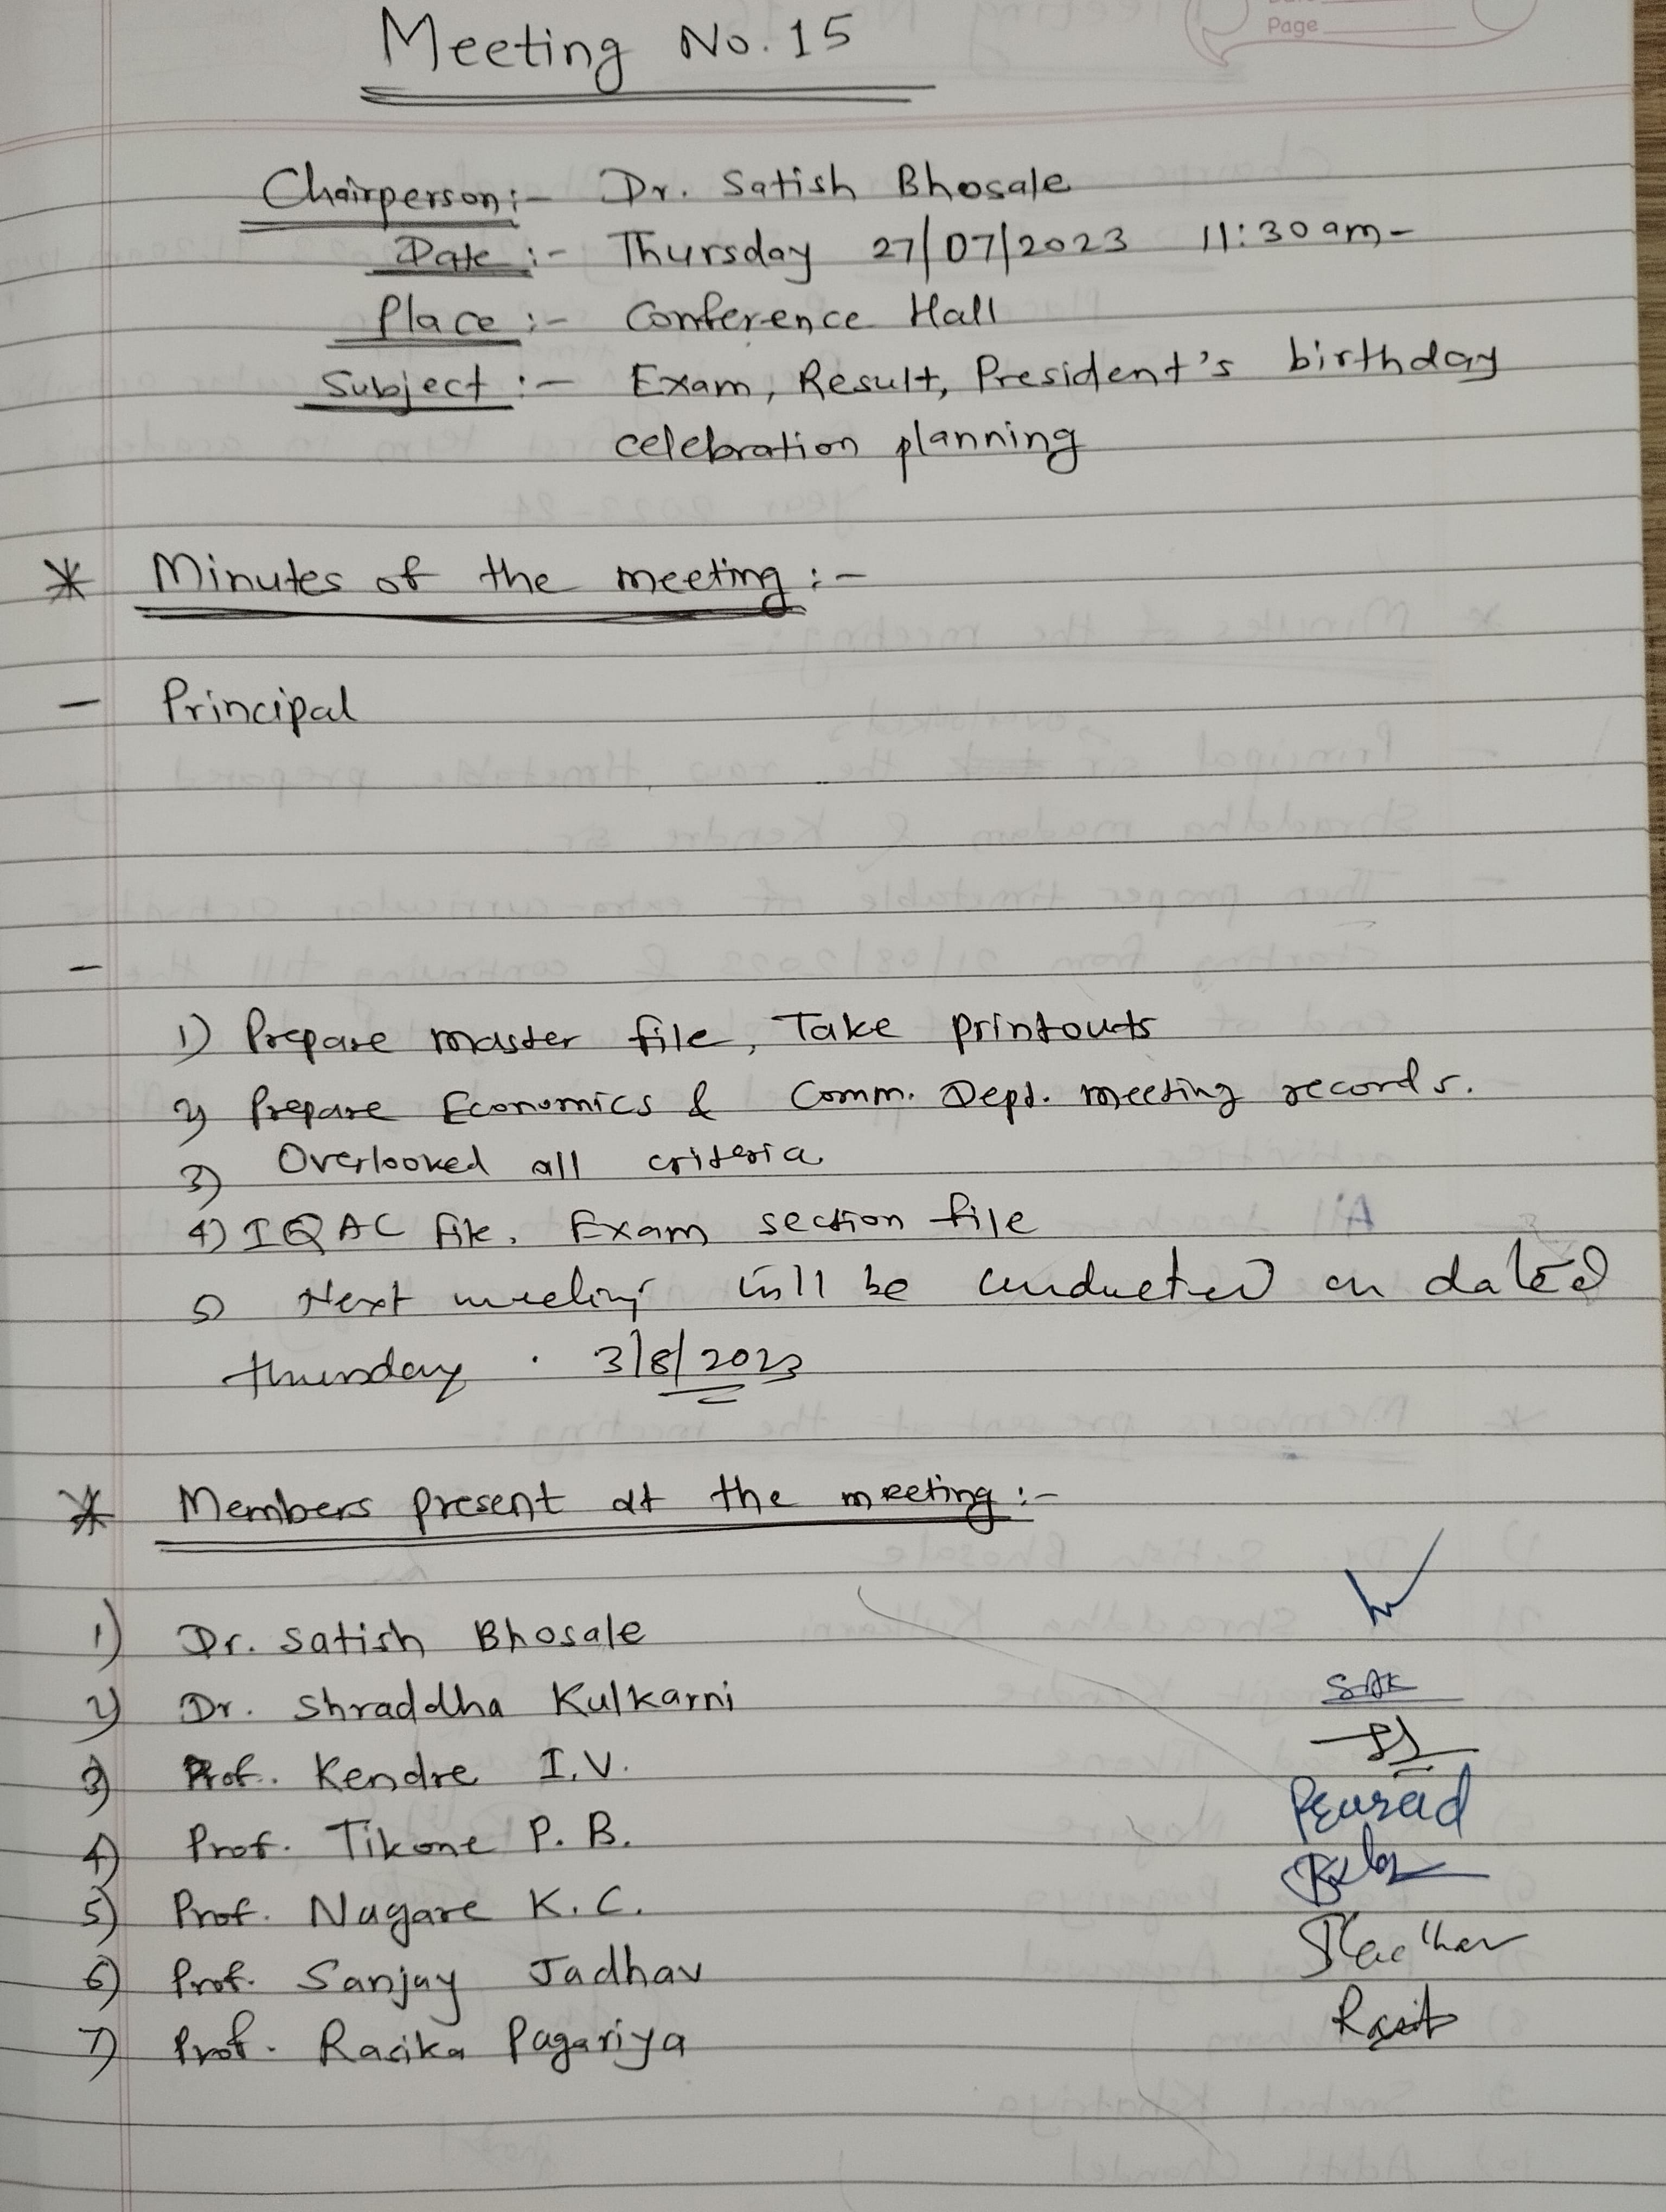 Page
Meeting No. 15
Chairperson :- Dr. Satish Bhosale
Date :- Thursday 27/07/2023 11:30 am-
Place :- Conference Hall
Subject :- Exam, Result, President's birthday
celebration planning
* Minutes of the meeting :-
- Principal
-
1) Prepare master file, Take printouts
2) Prepare Economics & Comm. Dept. meeting records.
3) Overlooked all criteria
4) IQAC file, Exam section file
5) Next meeting will be conducted on dated
thursday . 3/8/2023
* Members present at the meeting :-
1) Dr. Satish Bhosale
2) Dr. Shraddha Kulkarni SAK
3) Prof. Kendre I.V.
4) Prof. Tikone P. B.
5) Prof. Nagare K. C.
6) Prof. Sanjay Jadhav
7) Prof. Rasika Pagariya